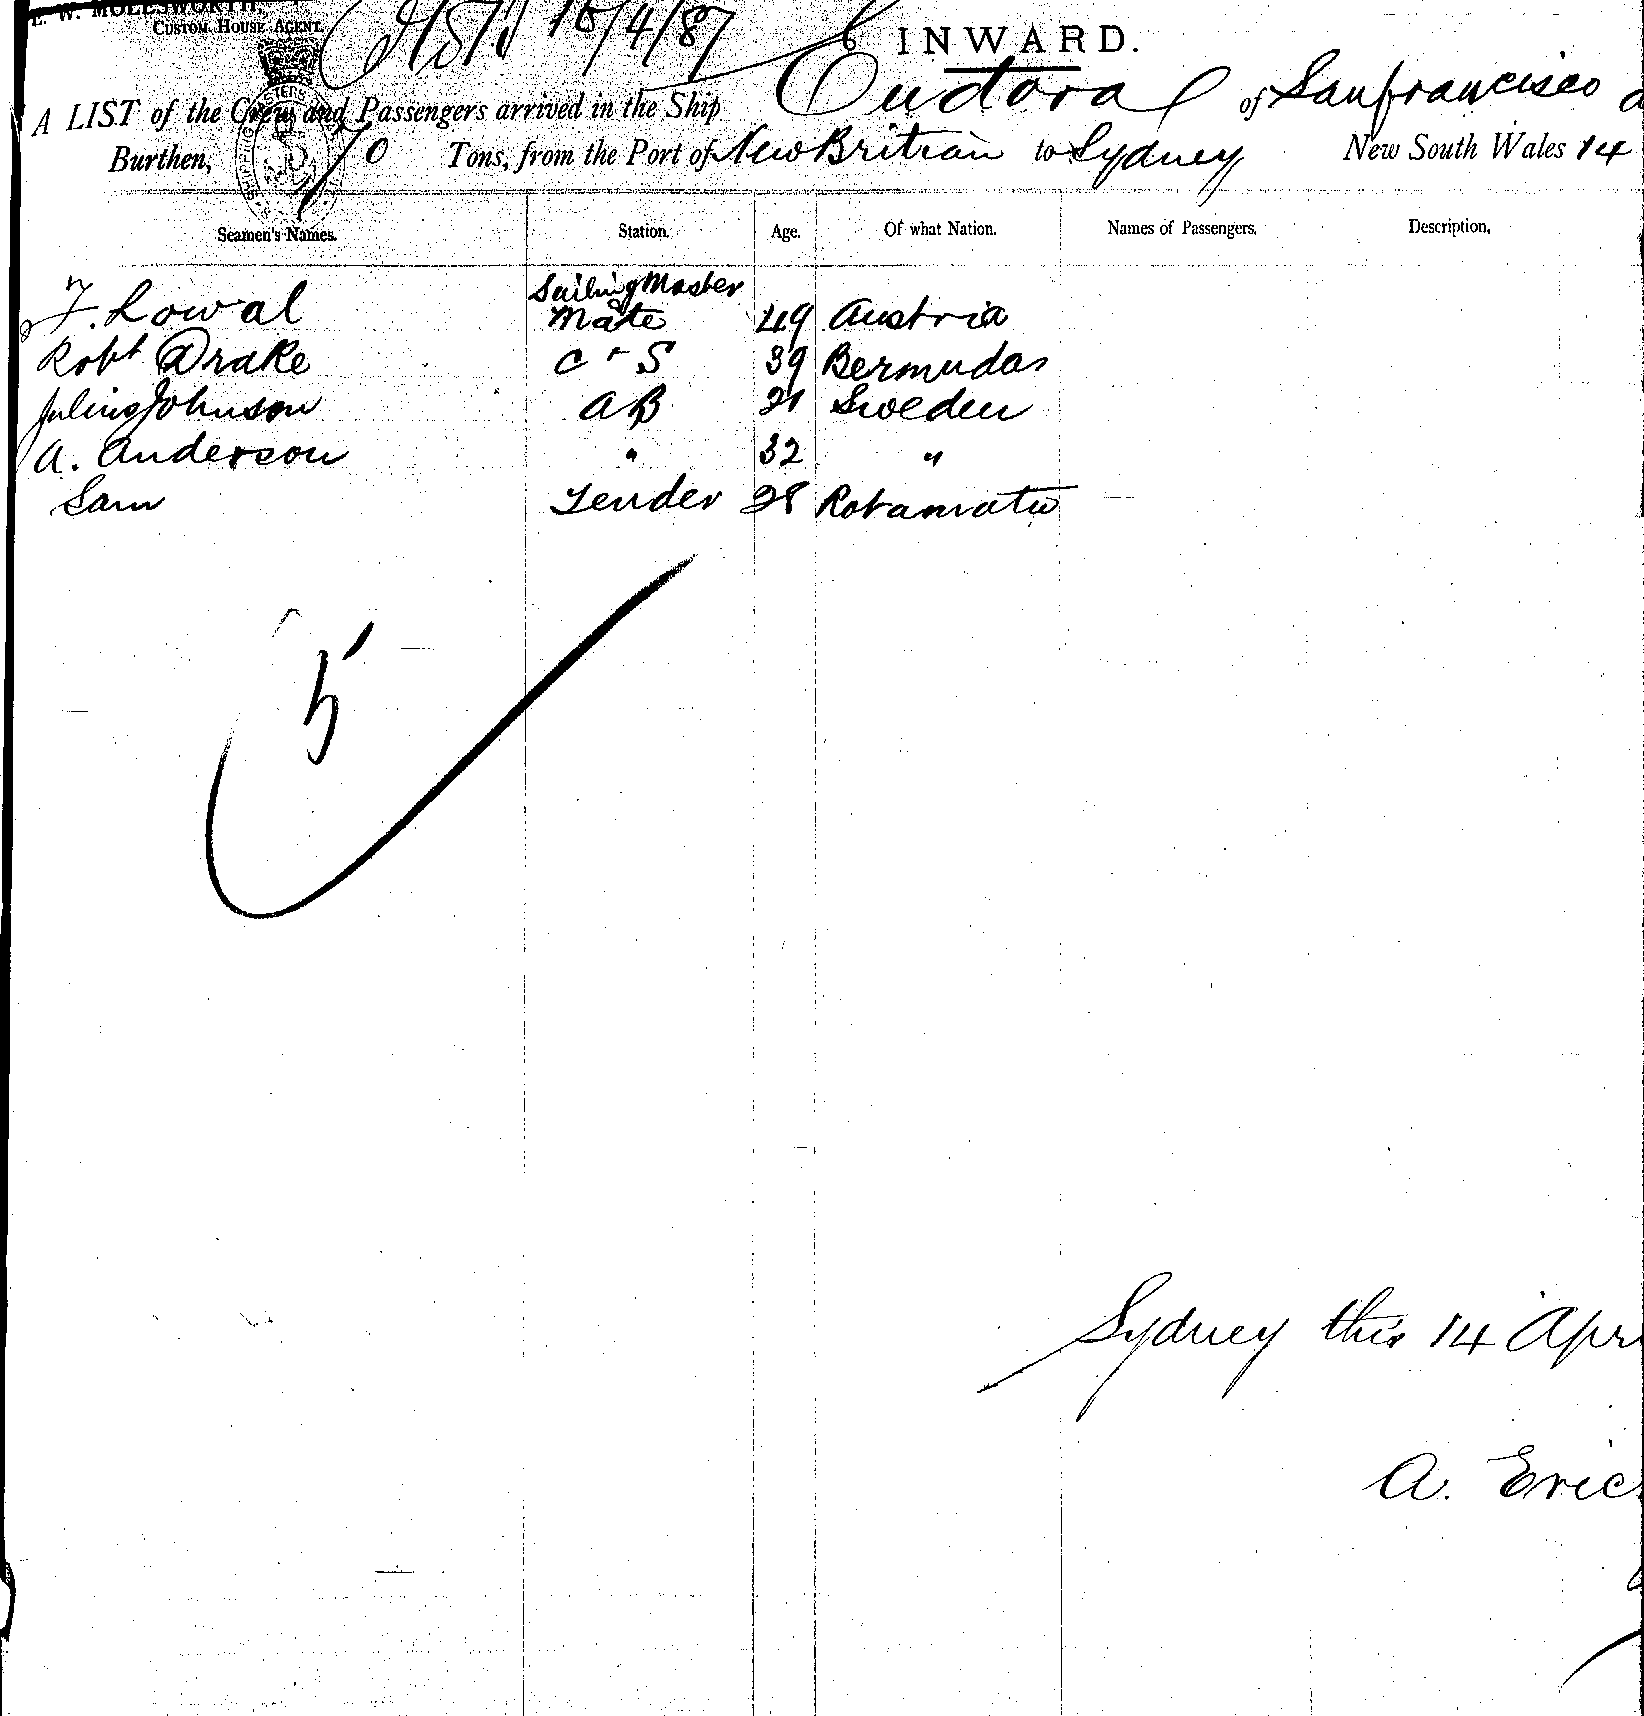 E. W. MOLESWORTH
CUSTOM HOUSE AGENT.
15/4/87
INWARD.
A LIST of the Crew and Passengers arrived in the Ship Eudora of Sanfrancisco
Burthen, 70 Tons, from the Port of New Britian to Sydney New South Wales 14
Seamen's Names. Station. Age. Of what Nation. Names of Passengers. Description.
Sailing Master
F. Lowal Mate 49 Austria
Robt Drake C & S 39 Bermudas
Julius Johnson AB 21 Sweden
A. Anderson " 32 "
Sam Tender 28 Rotamatu
5
Sydney this 14 Apri
A. Eric